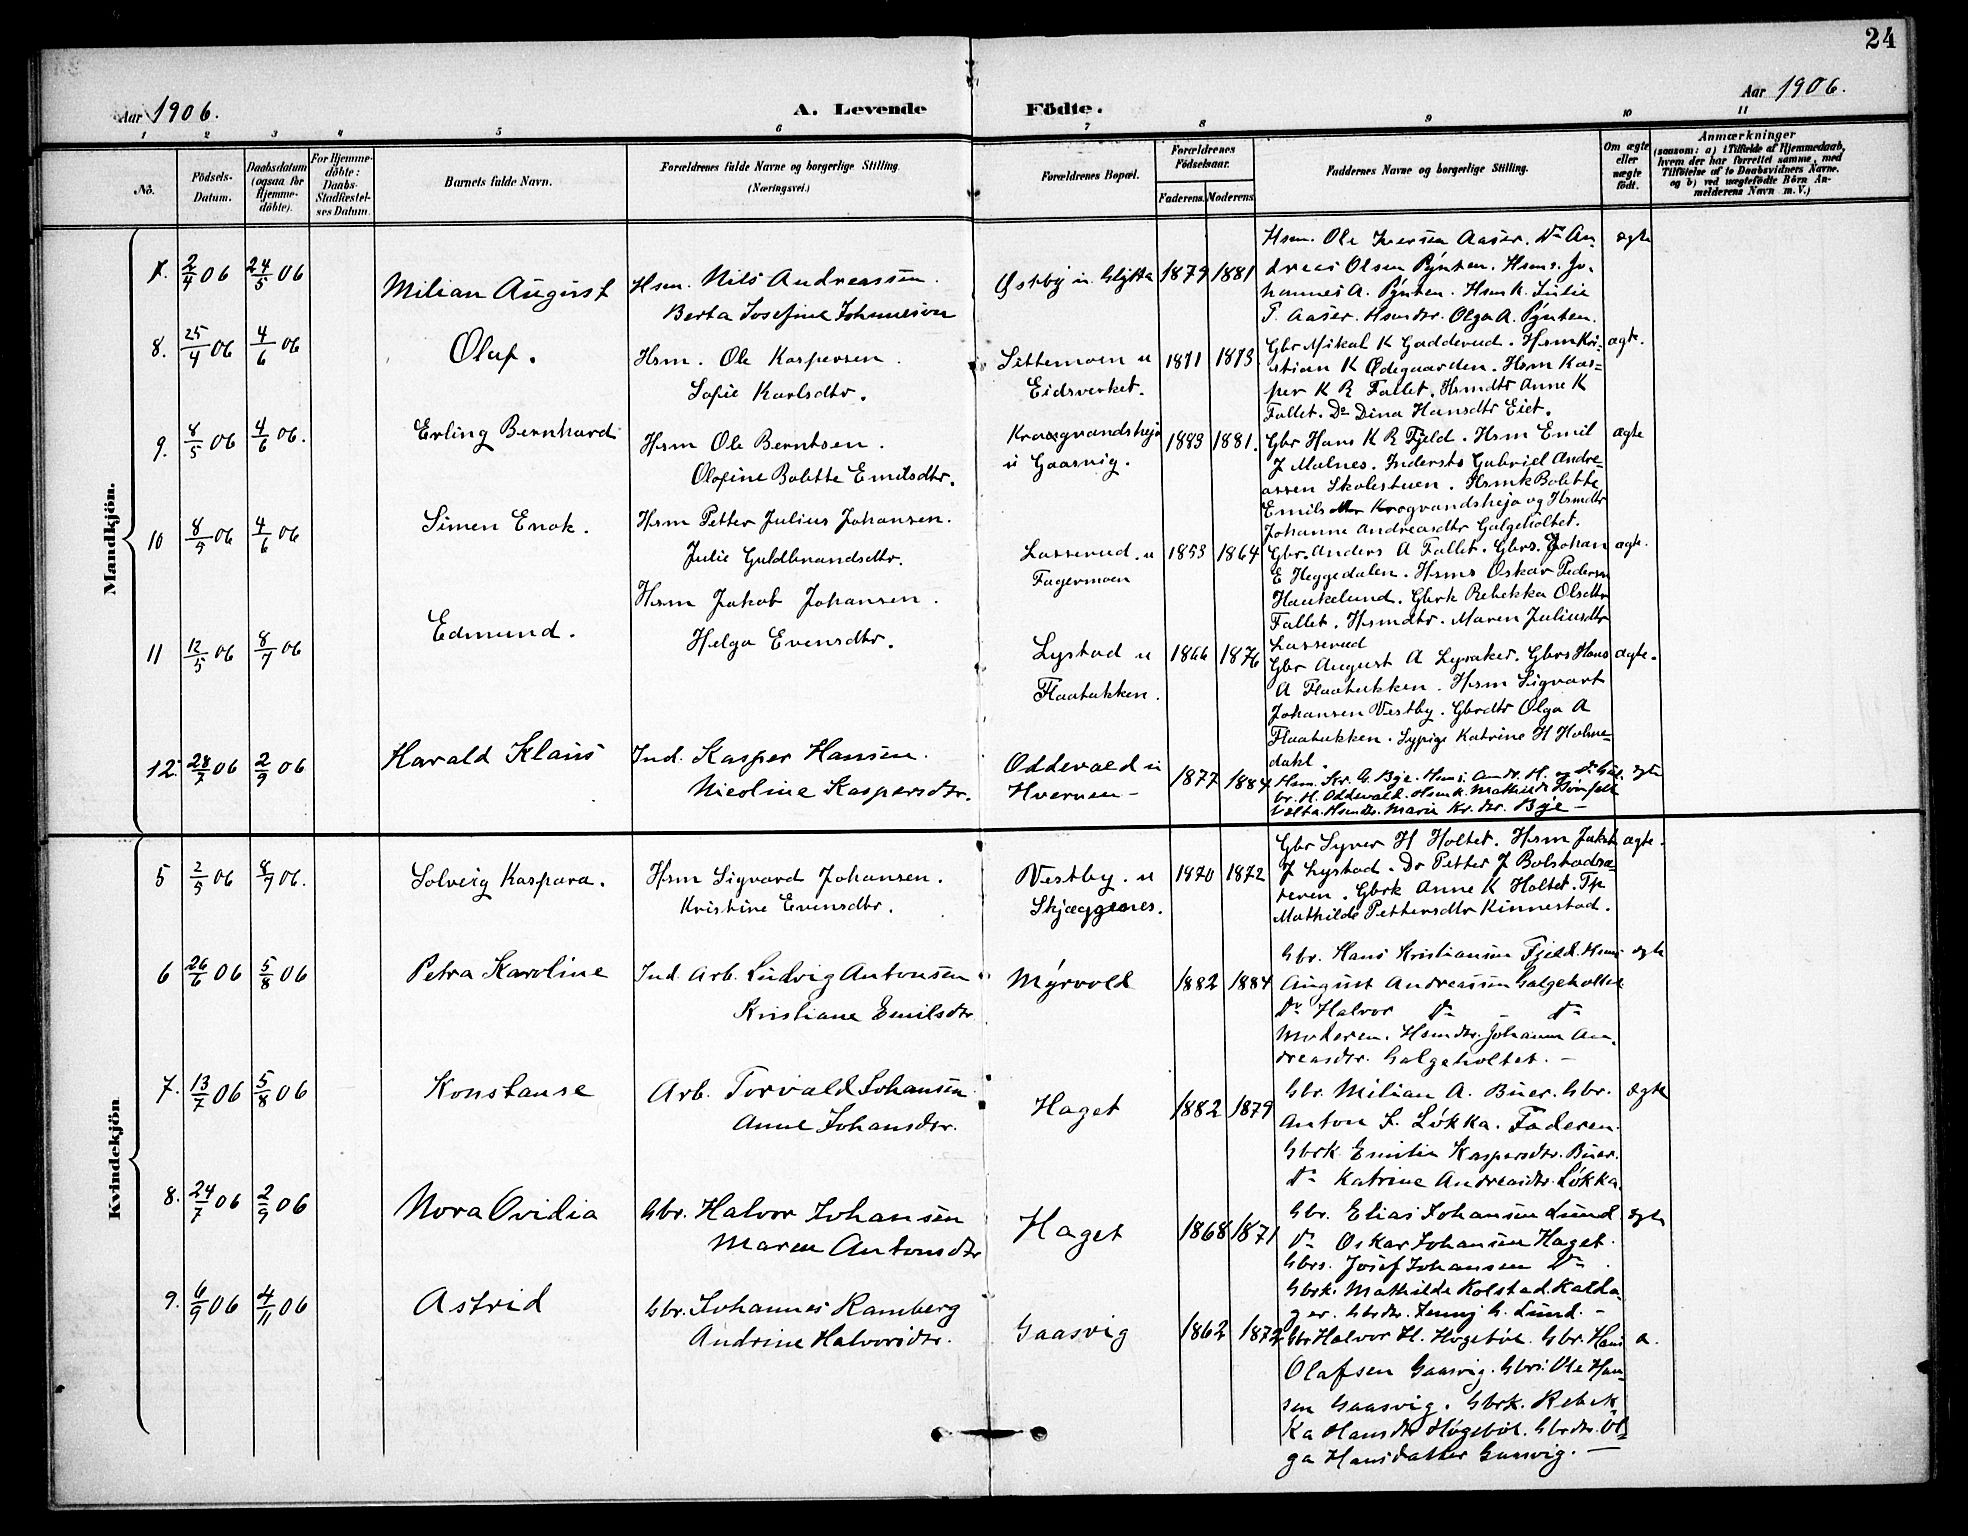 24
Aar 1906.
A. Levende Födte.
Aar 1906.
1 2 3 4 5 6 7 8 9 10 11
No.
Födsels-
Datum.
Daabsdatum
(ogsaa for
Hjemme-
döbte).
For Hjemme-
döbte:
Daabs-
Stadfæstel-
ses Datum.
Barnets fulde Navn.
Forældrenes fulde Navne og borgerlige Stilling.
(Næringsvei.)
Forældrenes Bopæl.
Forældrenes
Födselsaar.
Faderens. Moderens.
Faddernes Navne og borgerlige Stilling.
Om ægte
eller
uægte
födt.
Anmærkninger
(saasom: a) i Tilfælde af Hjemmedaab,
hvem der har forrettet samme, med
Tilföielse af to Daabsvidners Navne,
og b) ved uægtefödte Börn An-
melderens Navn m. V.)
Mandkjön.
7. 2/4 06 24/5 06
Milian August
Hsm. Nils Andreassen.
Berta Josefine Johannesen
Østby u. Sletta
1879 1881
Hsm. Ole Iversen Aaser. Do An-
dreas Olsen Pynten. Hsms. Jo-
hannes A. Pynten. Hsmk. Julie
T. Aaser. Hsmdtr. Olga A. Pynten.
ægte
8. 25/4 06 4/6 06
Olaf.
Hsm. Ole Kaspersen.
Sofie Karlsdtr.
Sittemoen u
Eidsverket.
1871 1873
Gbr Mikal K Gadderud. Hsm Kri-
stian K Ødegaarden. Hsm Kas-
per K R Fallet. Hsmdtr Anne K
Fallet. Do Dina Hansdtr Eiet.
ægte.
9. 8/5 06 4/6 06.
Erling Bernhard
Hsm Ole Berntsen.
Olofine Bolette Emilsdtr.
Krogvandsheja
u Gaasvig.
1883 1881.
Gbr Hans K R Fjeld. Hsm Emil
J Mulnes. Inderste Gabriel Andre-
assen Skolestuen. Hsmk Bolette
Emils Krogvandsheja og Hsmdtr
Johanne Andreasdtr Galgeholtet.
ægte
10 8/5 06 4/6 06
Simen Enok.
Hsm Petter Julius Johansen.
Julie Guldbrandsdtr.
Lasserud. u
Fagermoen
1853 1864
Gbr. Anders A Fallet. Gbrs. Johan
E Heggedalen. Hsms Oskar Pedersen
Haukelund. Gbrk Rebekka Olsdtr
Fallet. Hsmdtr. Maren Juliusdtr
Lasserud
ægte.
11 12/5 06 8/7 06
Edmund.
Hsm Jakob Johansen.
Helga Evensdtr.
Lystad u
Flaatukken.
1866 1876
Gbr August A Lysaker. Gbrs Hans
A Flaatukken. Hsm Sigvart
Johansen Vestby. Gbrdtr Olga A
Flaatukken. Sypige Katrine H Holme-
dahl.
ægte.
12. 28/7 06 2/9 06
Harald Klaus
Ind. Kasper Hansen.
Nicoline Kaspersdtr.
Oddevald u
Hvernen –
1877 1884
Hsm. Kr. G. Bye. Hsms. Andr. H.
H. Oddevald. Hsmk. Mathilde
Hsmdtr. Marie Kr. dtr. Bye –
ægte
Kvindekjön
5 2/5 06 8/7 06.
Solveig Kaspara.
Hsm Sigvard Johansen.
Kristine Evensdtr.
Vestby. u
Skjæggenes.
1870 1872
Gbr Syver H Holtet. Hsm Jakob
J Lystad. Do Petter J Bolstadsæ-
teren. Gbrk Anne K Holtet. Tp
Mathilde Pettersdtr Kinnestad.
ægte.
6 26/6 06 5/8 06
Petra Karoline
Ind. Arb. Ludvig Antonsen
Kristiane Emilsdtr
Myrvold
1882 1884
Gbr. Hans Kristiansen Fjeld. Hsms
August Andreassen Galgeholtet
Do Halvor Do – Do
Moderen. Hsmdtr. Johanne An-
dreasdtr. Galgeholtet. –
ægte
7. 13/7 06 5/8 06
Konstanse
Arb. Torvald Johansen
Anne Johansdtr.
Haget
1882 1879
Gbr. Milian A. Buer. Gbr.
Anton S. Løkka. Faderen.
Gbrk. Emilie Kaspersdtr. Buer.
Do Katrine Andreasdtr. Løkka.
ægte
8. 24/7 06 2/9 06
Nora Ovidia
Gbr. Halvor Johansen
Maren Antonsdtr
Haget
1868 1871
Gbr. Elias Johansen Lund
Do Oskar Johansen Haget.
Gbrs. Josef Johansen Do
Gbrk. Mathilde Kolstad Kalda-
ger. Gbrdtr. Jenny G. Lund. –
ægte
9. 6/9 06 4/11 06
Astrid
Gbr. Johannes Ramberg
Andrine Halvorsdtr.
Gaasvig
1862 1872
Gbr Halvor H. Høgebøl. Gbr. Hans
Olafsen Gaasvig. Gbrs. Ole Han-
sen Gaasvig. Gbrk. Rebek-
ka Hansdtr Høgebøl. Gbrdtr. Ol-
ga Hansdatter Gaasvig. –
æ.